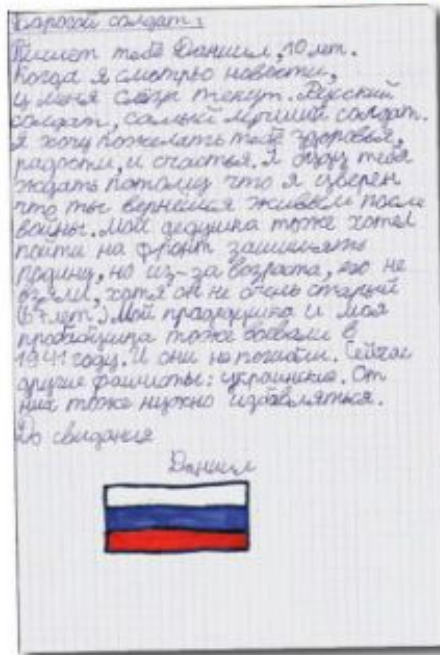 Дарогой солдат!
Пишет тебе Даниил, 10 лет.
Когда я смотрю новости,
у меня слёзы текут. Русский
солдат, самый лучший солдат.
Я хочу пожелать тебе здоровья,
радости, и счастья. Я буду тебя
ждать потому что я уверен
что ты вернешся живым после
войны. Мой дедушка тоже хотел
пойти на фронт защищать
родину, но из-за возраста, его не
взяли, хотя он не очень старый
(67 лет.) Мой прадедушка и моя
прабабушка тоже воевали в
1941 году. И они не погибли. Сейчас
другие фашисты: украинские. От
них тоже нужно избавляться.
До свидания
Даниил